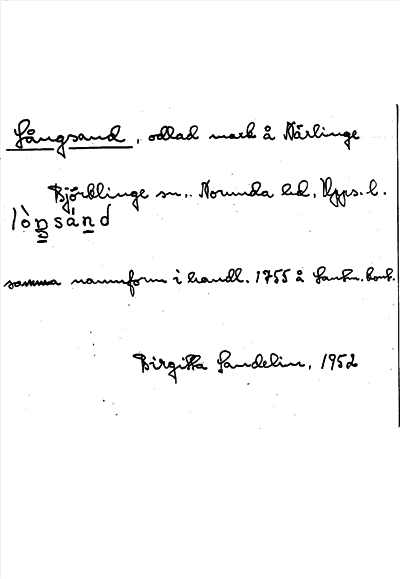 Långsand, odlad mark å Närlinge
Björklinge sn,. Norunda hd, Upps. l.
lòŋsánd
samma namnform i handl. 1755 å Lantm. kont.
Birgitta Sandelin, 1952